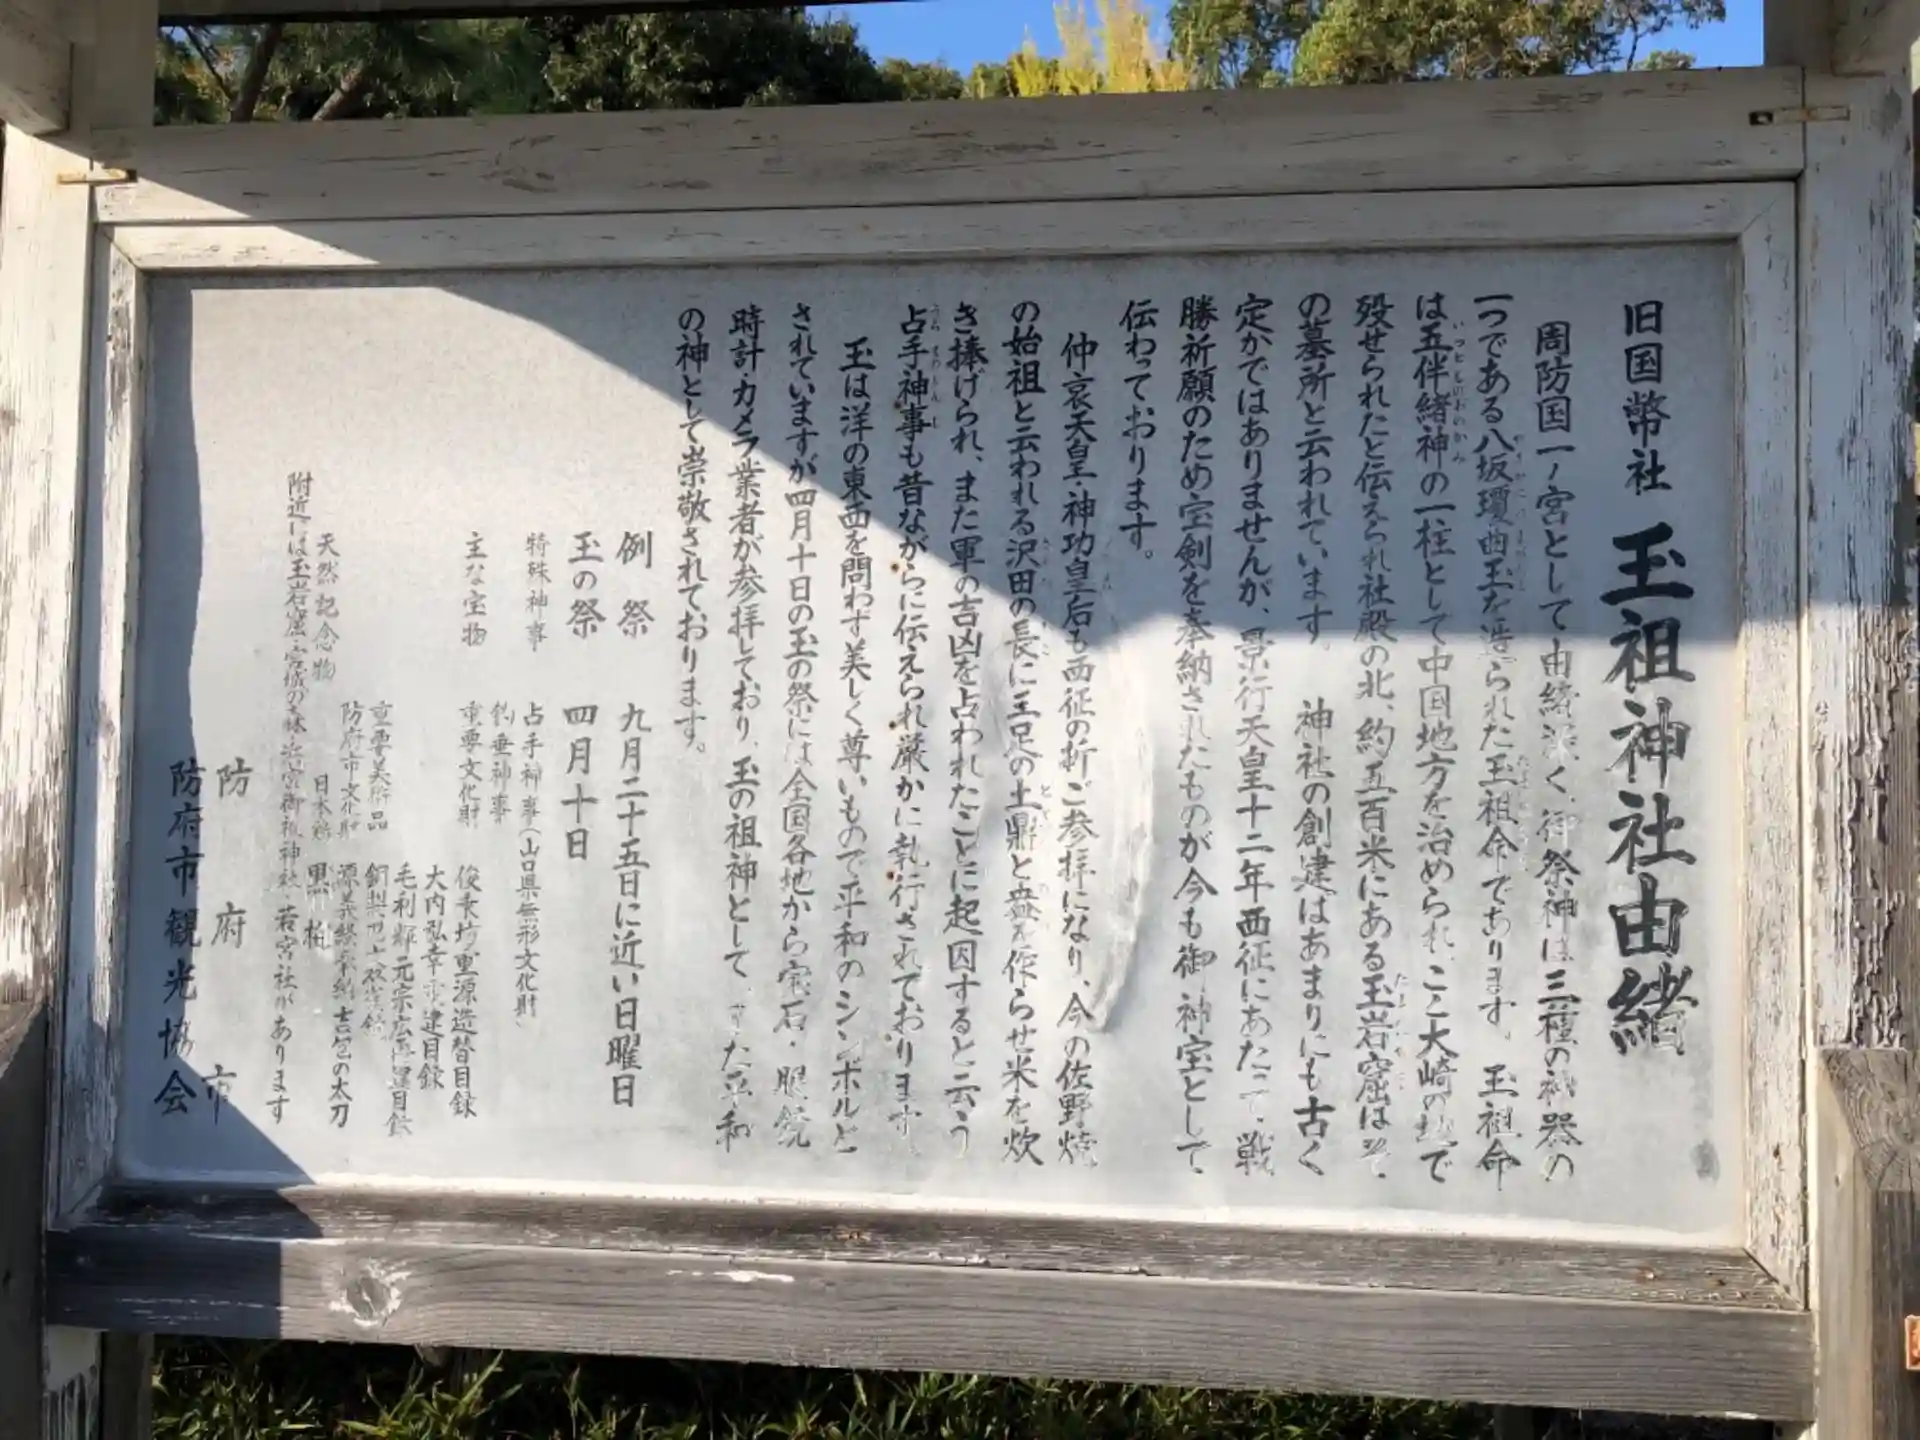 旧国幣社 玉祖神社由緒
周防国一ノ宮として由緒深く、御祭神は三種の神器の
一つである八坂瓊曲玉を造られた玉祖命であります。玉祖命
は五伴緒神の一柱として中国地方を治められ、ここ大崎の地で
歿せられたと伝えられ社殿の北、約五百米にある玉岩窟はそ
の墓所と云われています。 神社の創建はあまりにも古く
定かではありませんが、景行天皇十二年西征にあたって、戦
勝祈願のため宝剣を奉納されたものが今も御神宝として、
伝わっております。
仲哀天皇・神功皇后も西征の折ご参拝になり、今の佐野焼
の始祖と云われる沢田の長に土の土鼎と盎を作らせ米を炊
き捧げられ、また軍の吉凶を占われたことに起因すると云う
占手神事も昔ながらに伝えられ厳かに執行されております。
玉は洋の東西を問わず美しく尊いもので平和のシンボルと
されていますが四月十日の玉の祭には全国各地から宝石・眼鏡
時計・カメラ業者が参拝しており、玉の祖神として、また平和
の神として崇敬されております。
例祭 九月二十五日に近い日曜日
玉の祭 四月十日
特殊神事 占手神事(山口県無形文化財)
釣垂神事
主な宝物 重要文化財 俊乗坊重源造替目録
大内弘幸 建目録
毛利輝元宗広再建目録
重要美術品
防府市文化財 源義経奉納吉包の太刀
天然記念物 日本鶏 黒柏
附近には玉岩窟・宮城の森・浜宮御祖神社・若宮社があります
防府市
防府市観光協会